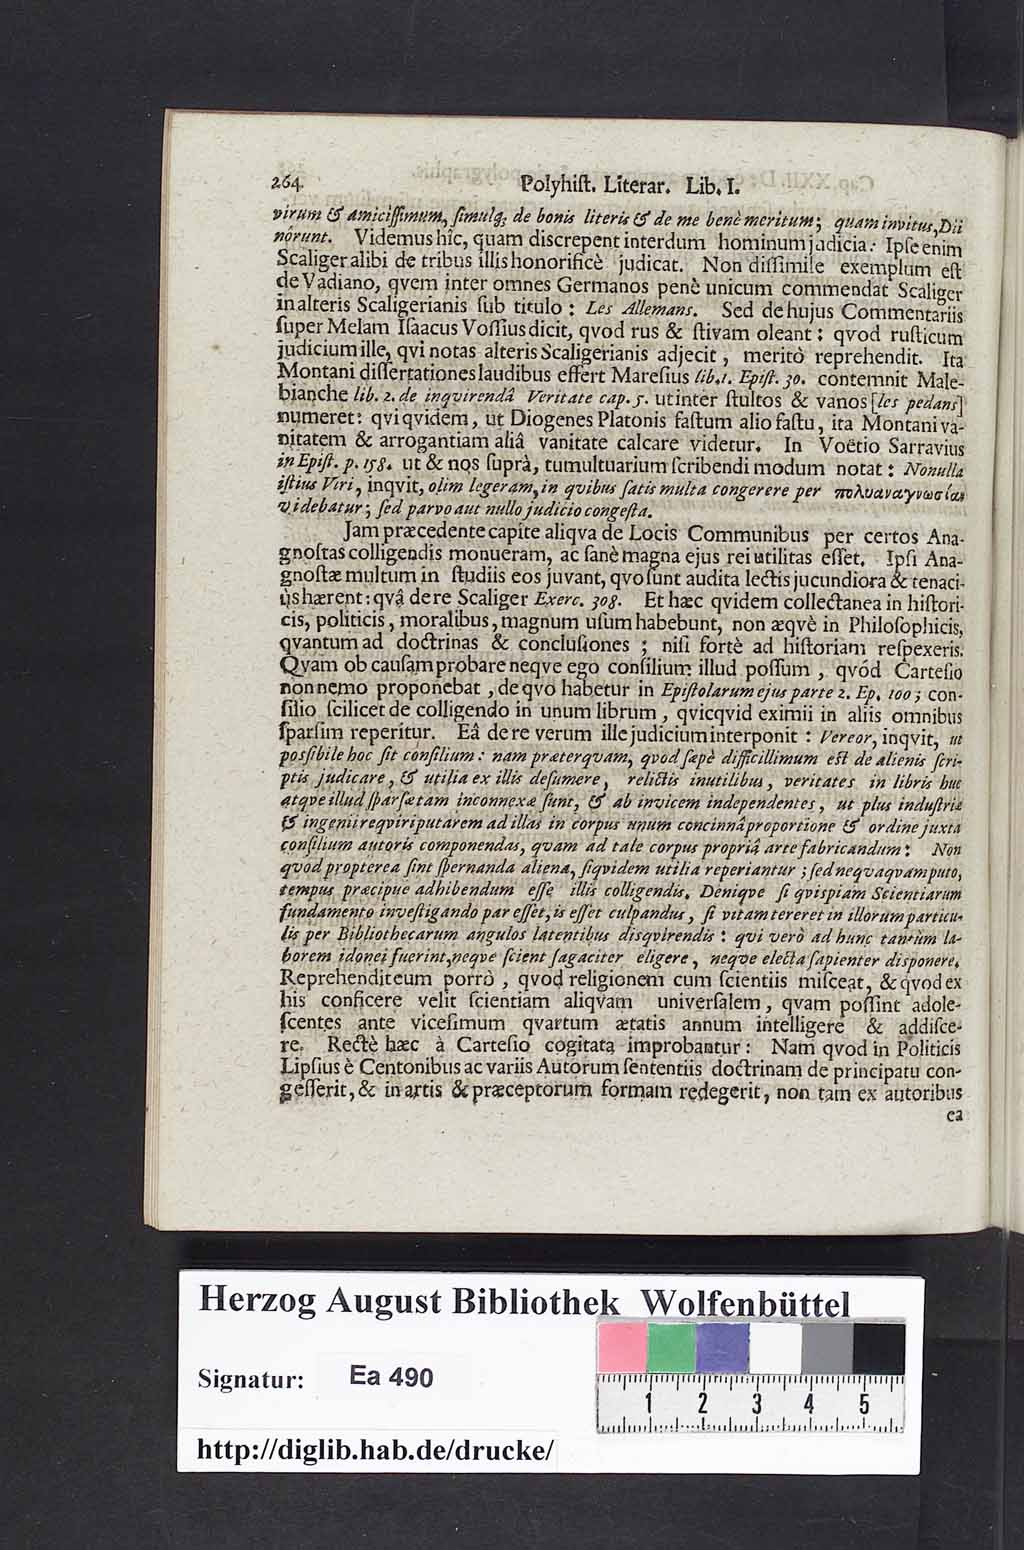 264. Polyhiſt. Literar. Lib. I.
virum & amiciſſimum, ſimulq; de bonis literis & de me benè meritum; quam invitus, Dii
nôrunt. Videmus hîc, quam discrepent interdum hominum judicia: Ipſe enim
Scaliger alibi de tribus illis honorificè judicat. Non diſſimile exemplum eſt
de Vadiano, qvem inter omnes Germanos penè unicum commendat Scaliger
in alteris Scaligerianis ſub titulo: Les Allemans. Sed de hujus Commentariis
ſuper Melam Iſaacus Voſſius dicit, qvod rus & ſtivam oleant: qvod ruſticum
judicium ille, qvi notas alteris Scaligerianis adjecit, meritò reprehendit. Ita
Montani diſſertationes laudibus effert Mareſius lib. 1. Epiſt. 30. contemnit Male-
bianche lib. 2. de inqvirendâ Veritate cap. 5. ut inter ſtultos & vanos [les pedans]
numeret: qvi qvidem, ut Diogenes Platonis faſtum alio faſtu, ita Montani va-
nitatem & arrogantiam aliâ vanitate calcare videtur. In Voëtio Sarravius
in Epiſt. p. 158. ut & nos ſuprà, tumultuarium ſcribendi modum notat: Nonulla
iſtius Viri, inqvit, olim legeram, in qvibus ſatis multa congerere per πολυαναγνωσίαν
videbatur; ſed parvo aut nullo judicio congeſta.
Jam præcedente capite aliqva de Locis Communibus per certos Ana-
gnoſtas colligendis monueram, ac ſanè magna ejus rei utilitas eſſet. Ipſi Ana-
gnoſtæ multum in ſtudiis eos juvant, qvo ſunt audita lectis jucundiora & tenaci-
ùs hærent: qvâ de re Scaliger Exerc. 308. Et hæc qvidem collectanea in hiſtori-
cis, politicis, moralibus, magnum uſum habebunt, non æqvè in Philoſophicis,
qvantum ad doctrinas & concluſiones; niſi fortè ad hiſtoriam reſpexeris.
Qvam ob cauſam probare neqve ego conſilium illud poſſum, qvód Carteſio
non nemo proponebat, de qvo habetur in Epiſtolarum ejus parte 2. Ep. 100; con-
ſilio ſcilicet de colligendo in unum librum, qvicqvid eximii in aliis omnibus
ſparſim reperitur. Eâ de re verum ille judicium interponit: Vereor, inqvit, ut
poſſibile hoc ſit conſilium: nam præterqvam, qvod ſæpè difficillimum eſt de alienis ſcri-
ptis judicare, & utilia ex illis deſumere, relictis inutilibus, veritates in libris huc
atqve illud ſparſæ tam inconnexæ ſunt, & ab invicem independentes, ut plus induſtriæ
& ingenii reqviri putarem ad illas in corpus unum concinnâ proportione & ordine juxta
conſilium autoris componendas, qvam ad tale corpus propriâ arte fabricandum: Non
qvod propterea ſint ſpernanda aliena, ſiqvidem utilia reperiantur; ſed neqvaqvam puto,
tempus præcipue adhibendum eſſe illis colligendis. Deniqve ſi qvispiam Scientiarum
fundamento inveſtigando par eſſet, is eſſet culpandus, ſi vitam tereret in illorum particu-
lis per Bibliothecarum angulos latentibus disqvirendis: qvi verò ad hunc tantùm la-
borem idonei fuerint, neqve ſcient ſagaciter eligere, neqve electa ſapienter disponere.
Reprehendit eum porrò, qvod religionem cum ſcientiis miſceat, & qvod ex
his conficere velit ſcientiam aliqvam univerſalem, qvam poſſint adole-
ſcentes ante viceſimum qvartum ætatis annum intelligere & addiſce-
re. Rectè hæc à Carteſio cogitata improbantur: Nam qvod in Politicis
Lipſius è Centonibus ac variis Autorum ſententiis doctrinam de principatu con-
geſſerit, & in artis & præceptorum formam redegerit, non tam ex autoribus
ea
Herzog August Bibliothek Wolfenbüttel
Signatur: Ea 490
1 2 3 4 5
http://diglib.hab.de/drucke/